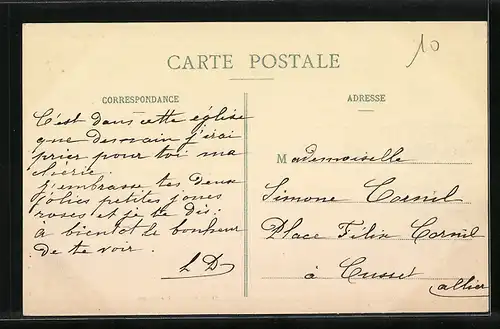 10
CARTE POSTALE
CORRESPONDANCE
C'est dans cette église
que demain j'irai
prier pour toi ma
chérie.
J'embrasse tes deux
jolies petites joues
roses et je te dis:
à bientot le bonheur
de te voir.
L D
ADRESSE
Mademoiselle
Simone Cornil
Place Félix Cornil
à Cusset
allier